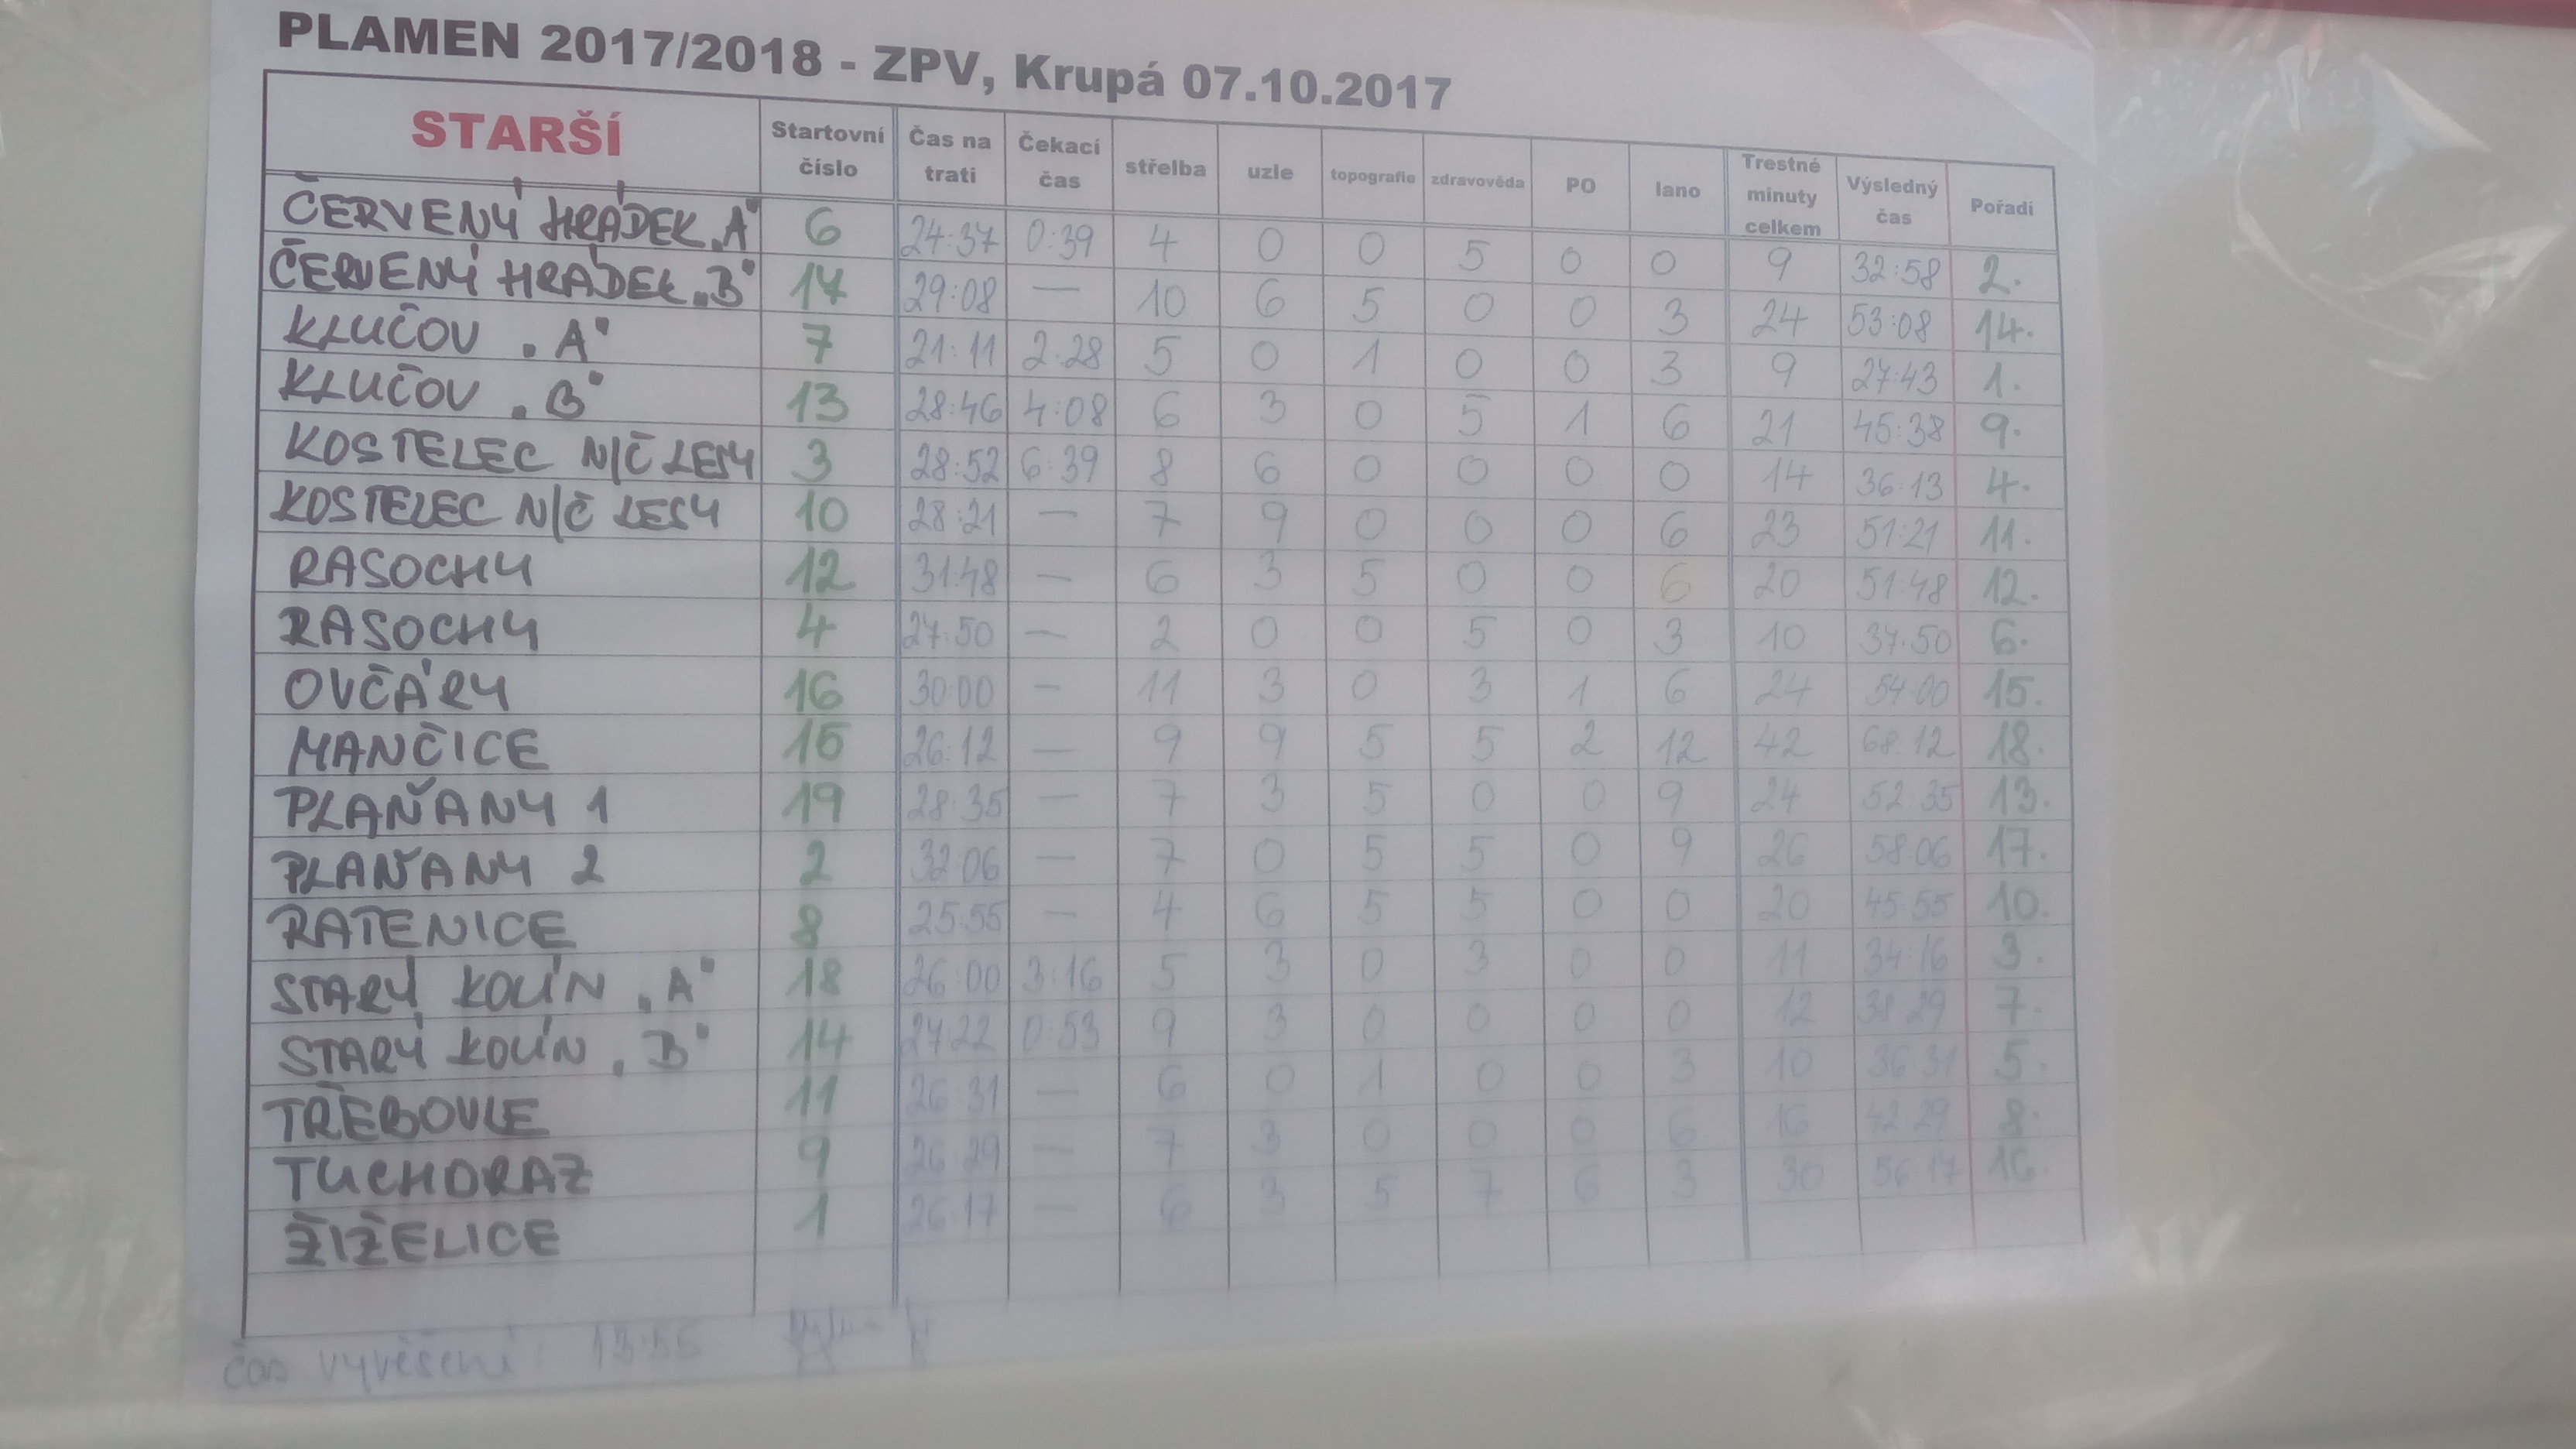 PLAMEN 2017/2018 - ZPV, Krupá 07.10.2017
STARŠÍ Startovní číslo Čas na trati Čekací čas střelba uzle topografie zdravověda PO lano Trestné minuty celkem Výsledný čas Pořadí
ČERVENÝ HRÁDEK „A" 6 24:37 0:39 4 0 0 5 0 0 9 32:58 2.
ČERVENÝ HRÁDEK „B" 17 29:08 — 10 6 5 0 0 3 24 53:08 14.
KLUČOV „A" 7 21:11 2:28 5 0 1 0 0 3 9 27:43 1.
KLUČOV „B" 13 28:46 4:08 6 3 0 5 1 6 21 45:38 9.
KOSTELEC N/Č LESY 3 28:52 6:39 8 6 0 0 0 0 14 36:13 4.
KOSTELEC N/Č LESY 10 28:21 — 7 9 0 0 0 6 23 51:21 11.
RASOCHY 12 31:48 — 6 3 5 0 0 6 20 51:48 12.
RASOCHY 4 27:50 — 2 0 0 5 0 3 10 37:50 6.
OVČÁRY 16 30:00 — 11 3 0 3 1 6 24 54:00 15.
MANČICE 15 26:12 — 9 9 5 5 2 12 42 68:12 18.
PLAŇANY 1 19 28:35 — 7 3 5 0 0 9 24 52:35 13.
PLAŇANY 2 2 32:06 — 7 0 5 5 0 9 26 58:06 17.
RATENICE 8 25:55 — 4 6 5 5 0 0 20 45:55 10.
STARÝ KOLÍN „A" 18 26:00 3:16 5 3 0 3 0 0 11 34:16 3.
STARÝ KOLÍN „B" 14 27:22 0:53 9 3 0 0 0 0 12 38:29 7.
TŘEBOVLE 11 26:31 — 6 0 1 0 0 3 10 36:31 5.
TUCHORAZ 9 26:29 — 7 3 0 0 0 6 16 42:29 8.
ŽIŽELICE 1 26:17 — 6 3 5 7 6 3 30 56:17 16.
čas vyvěšení: 13:55